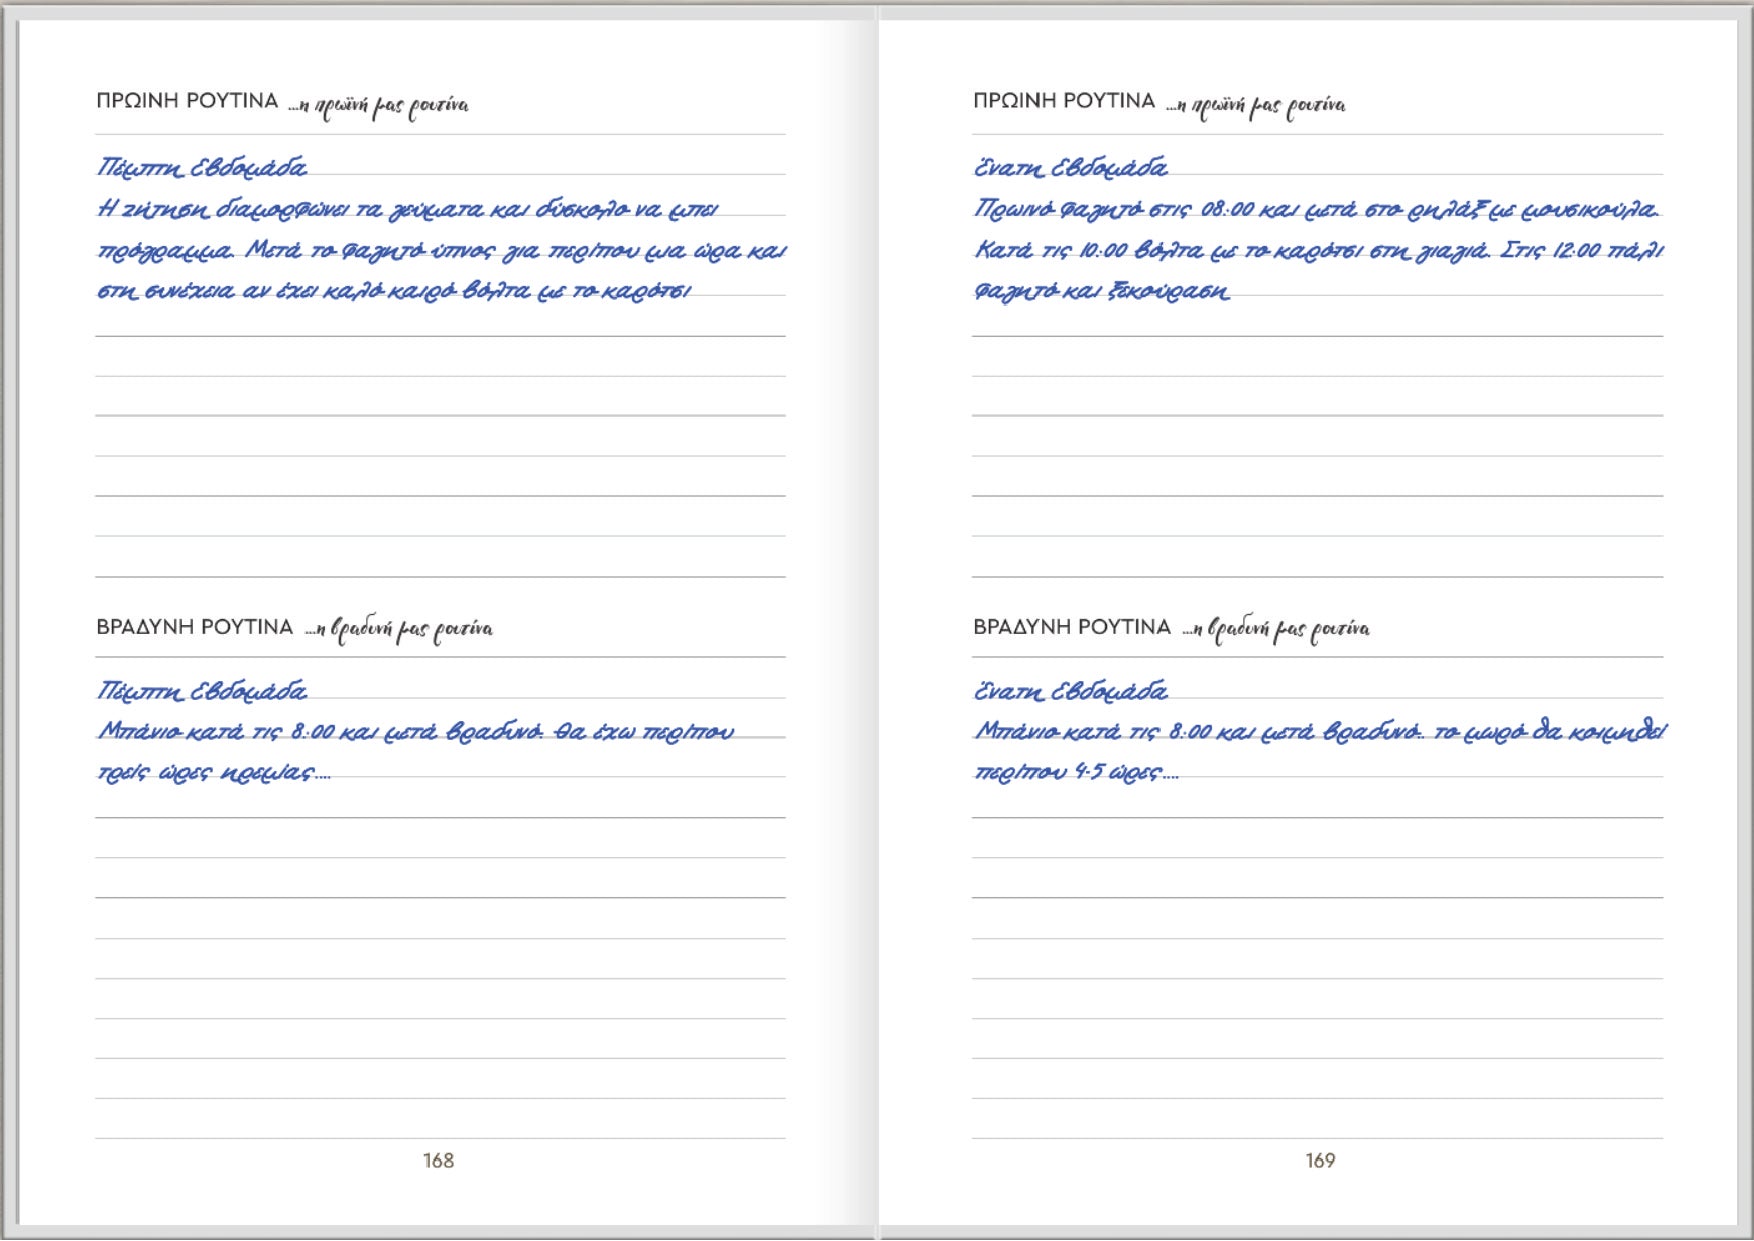 ΠΡΩΙΝΗ ΡΟΥΤΙΝΑ ...η πρωϊνή μας ρουτίνα
Πέμπτη Εβδομάδα
Η ζήτηση διαμορφώνει τα γεύματα και δύσκολο να μπει
πρόγραμμα. Μετά το φαγητό ύπνος για περίπου μια ώρα και
στη συνέχεια αν έχει καλό καιρό βόλτα με το καρότσι
ΒΡΑΔΥΝΗ ΡΟΥΤΙΝΑ ...η βραδυνή μας ρουτίνα
Πέμπτη Εβδομάδα
Μπάνιο κατά τις 8:00 και μετά βραδυνό. Θα έχω περίπου
τρείς ώρες ηρεμίας....
168
ΠΡΩΙΝΗ ΡΟΥΤΙΝΑ ...η πρωϊνή μας ρουτίνα
Ένατη Εβδομάδα
Πρωινό φαγητό στις 08:00 και μετά στο ρηλάξ με μουσικούλα.
Κατά τις 10:00 βόλτα με το καρότσι στη γιαγιά. Στις 12:00 πάλι
φαγητό και ξεκούραση
ΒΡΑΔΥΝΗ ΡΟΥΤΙΝΑ ...η βραδυνή μας ρουτίνα
Ένατη Εβδομάδα
Μπάνιο κατά τις 8:00 και μετά βραδυνό.. το μωρό θα κοιμηθεί
περίπου 4-5 ώρες....
169